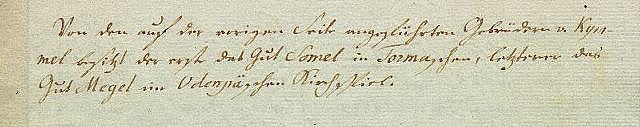 Von den auf der vorigen Seite angeführten Gebrüdern v. Kym-
mel besitzt der erste das Gut Somel in Tormaschen, letzterer das
Gut Megel im Odenpäschen Kirchspiel.